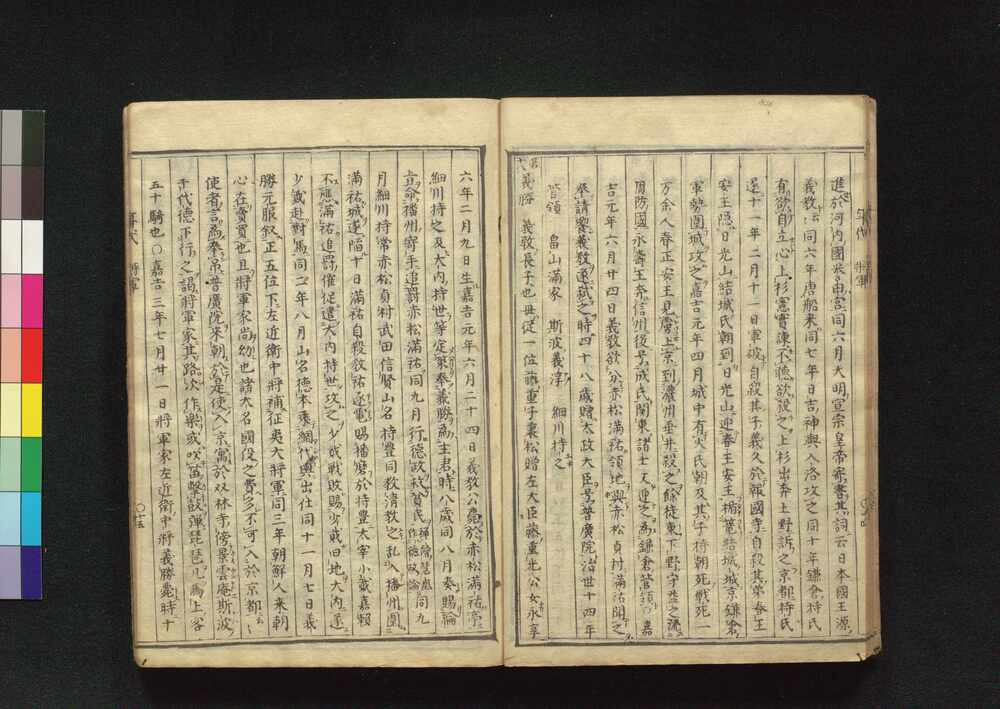 進於河内國出由宮同六月大明宣宗皇帝寄書其詞云日本國王源
義教云同六年唐船来同七年日吉神輿入洛攻之同十年鎌倉持氏
有欲自立心上杉憲實諫不聴欲殺之上杉出奔上野訴之京都持氏
還十一年二月十一日軍破自殺其子義久於報國寺自殺其弟春王
安王隠日光山結城氏朝到日光山迎春王安王楯篭結城城京鎌倉
軍勢圍城攻之嘉吉元年四月城中有火氏朝及其子持朝死戦死一
万余人春正安王見虜上京到濃州垂井殺之餘徒東下野守
周防國永壽王奔信州後号成氏関東諸士又迎之為鎌倉管領嘉
吉元年六月廿四日義教欲分赤松満祐領地與赤松貞村満祐聞之
饗義教遂弑之時四十八歳贈太政大臣号普廣院治世十四年
管領 畠山満家 斯波義淳 細川持之
義勝 義教長子也母従一位藤重子裏松贈左大臣藤重光公女永享
六年二月九日生嘉吉元年六月二十四日義教公薨於赤松満祐亭
細川持之及大内持世等定策奉義勝為主君時八歳同八月奏賜論
命播州寄手追罰赤松満祐同九月行徳政救貧民 同九
月細川持常赤松貞村武田信賢山名持豊同教清教之乱入播州圍
満祐城遂陥十日満祐自殺教祐逐電賜播磨於持豊太宰小貳嘉頼
不應満祐追罰催促遣大内持世攻之少貳戦敗賜少貳旧地大内遂
少貳赴對馬同二年八月山名徳本乗網代輿出仕同十一月七日義
勝元服叙正五位下左近衛中将補征夷大将軍同三年朝鮮人来朝
心在賣買也且将軍家尚幼也諸大名國役之費多不可入於京都云
使者言為奉吊普廣院来朝於是使入京寓於双林寺傍景雲庵斯波
千代徳丸行之謁将軍家其路次作樂或吹笛撃鼓弾琵琶凡為上客
五十騎也〇嘉吉三年七月廿一日将軍家左近衛中将義勝薨時十